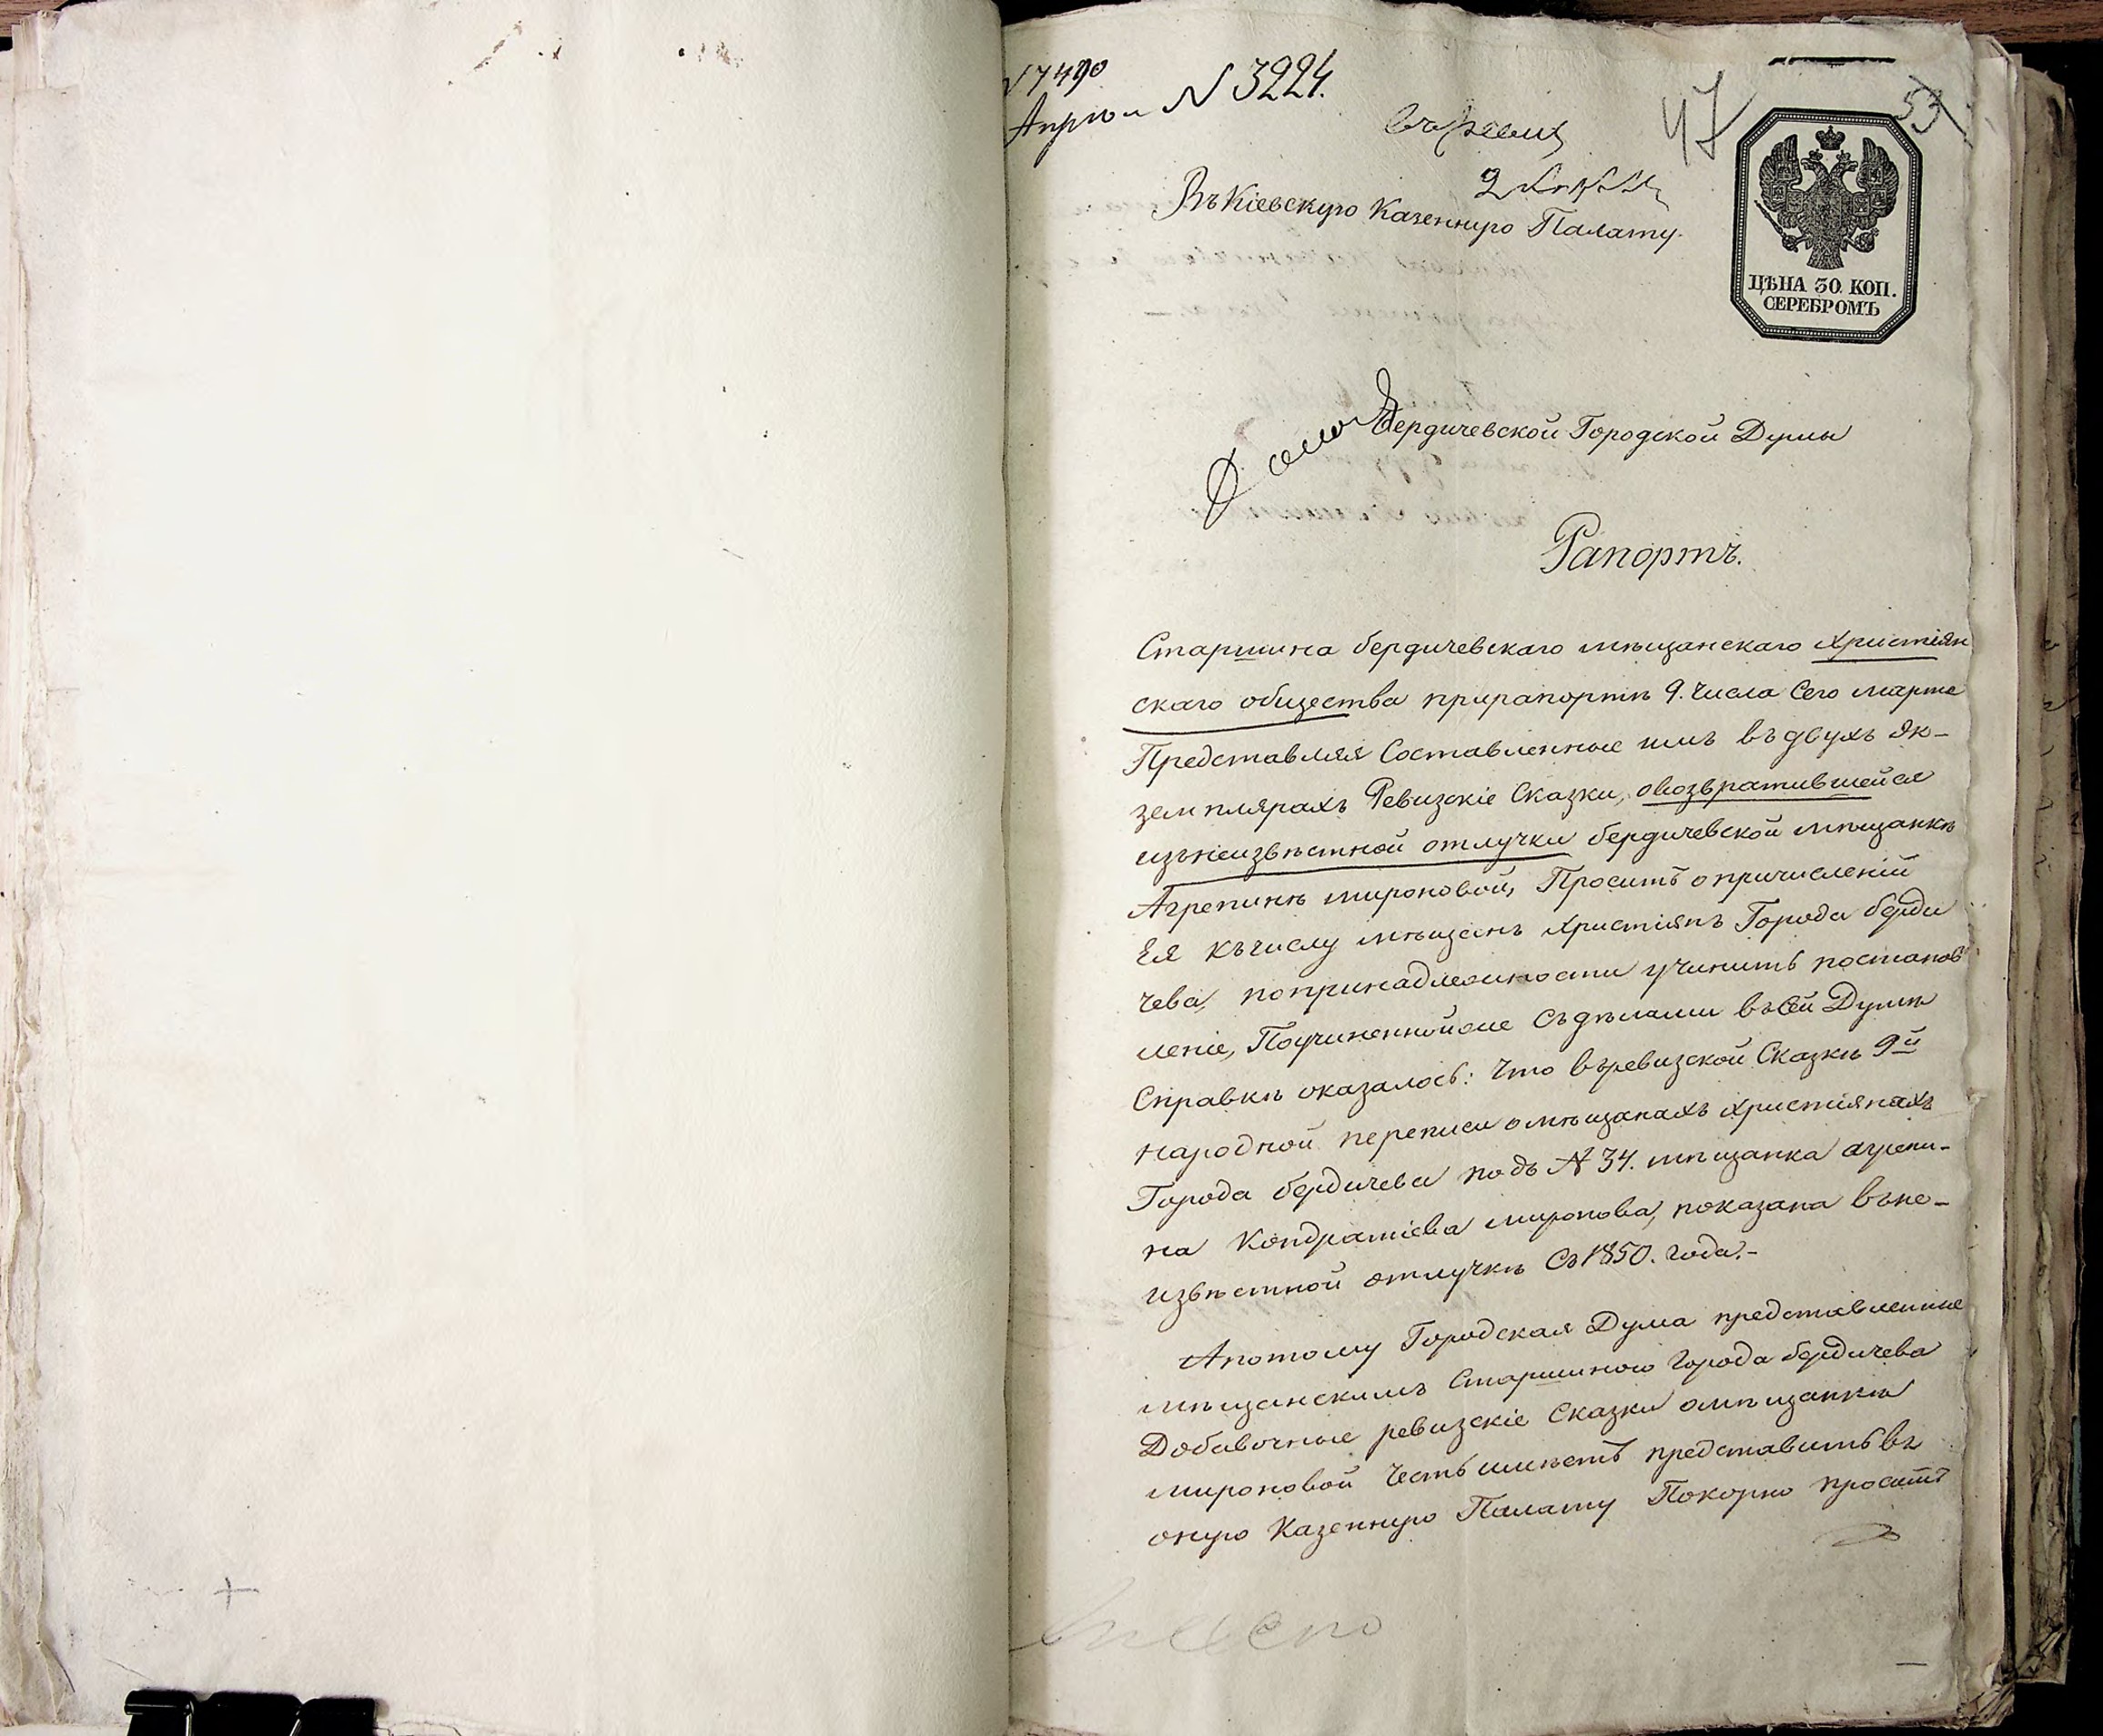 № 7490
№ 3224.
47
53
2 Апреля
Въ Кіевскую Казенную Палату.
ЦѢНА 30. КОП.
СЕРЕБРОМЪ
Бердичевской Городской Думы
Рапортъ.
Старшина бердичевскаго мѣщанскаго Христіян
скаго общества прирапортѣ 9. числа сего марта
Представляя Составленные имъ въ двухъ эк-
земплярахъ Ревизскіе Сказки, овозвратившейся
изънеизвѣстной отлучки бердичевской мѣщанкѣ
Агрепинѣ мироновой, Проситъ опричисленіи
Ея къчислу мѣщанъ христіянъ Города берди
чева, попринадлежности учинить постанов
леніе, Поучиненнойже съдѣлами въсей Думѣ
Справкѣ оказалось: что въревизской Сказкѣ 9й
народной переписи омѣщанахъ христіянахъ
Города бердичева подъ № 34. мѣщанка агрепи-
на Кондратіева миронова, показана въне-
извѣстной отлучкѣ съ 1850. года.-
Апотому Городская Дума представленные
мѣщанскимъ Старшиною города бердичева
Добавочные ревизскіе Сказки омѣщанкѣ
мироновой честь имѣетъ представить въ
оную Казенную Палату Покорно проситъ